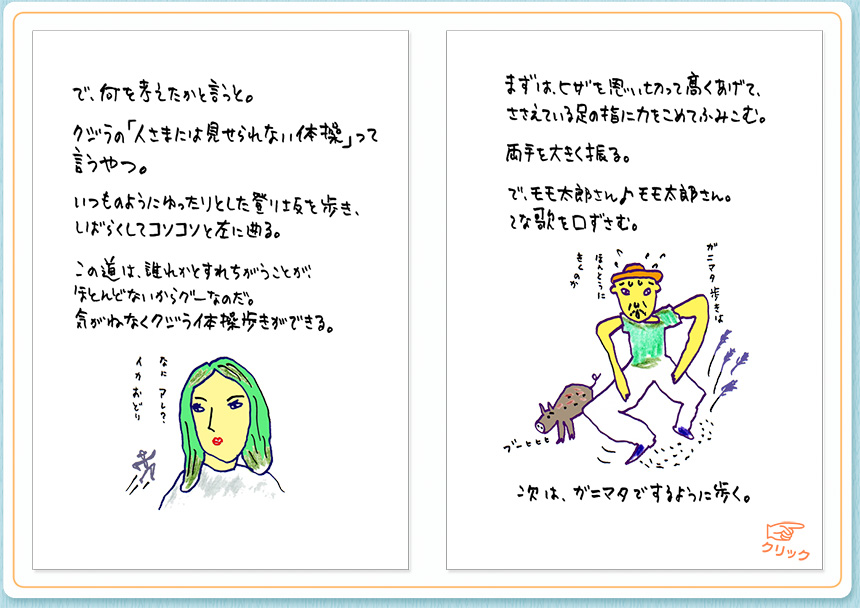 で、何を考えたかと言うと。
クジラの「人さまには見せられない体操」って
言うやつ。
いつものようにゆったりとした登り坂を歩き、
しばらくしてコソコソと左に曲る。
この道は、誰れかとすれちがうことが、
ほとんどないからグーなのだ。
気がねなくクジラ体操歩きができる。
なに アレ?
イカ おどり
まずは、ヒザを思い切って高くあげて、
ささえている足の指に力をこめてふみこむ。
両手を大きく振る。
で、モモ太郎さん♪モモ太郎さん。
てな歌を口ずさむ。
ガニマタ歩きは
ほんとうに
きくのか
ブーヒヒヒ
次は、ガニマタでするように歩く。
クリック